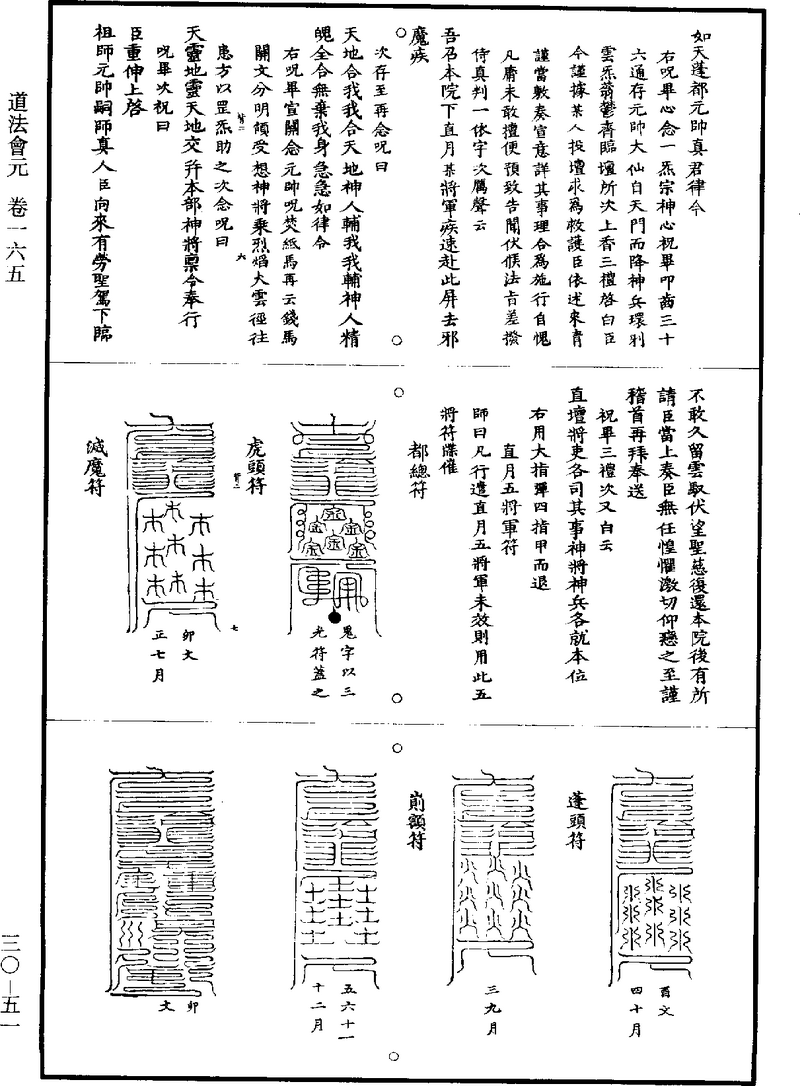 道法會元 卷一六五
三〇—五一
如天蓬都元帥真君律令
右呪畢心念一炁宗神心祝畢叩齒三十
六通存元帥大仙自天門而降神兵環列
雲炁蓊鬱齊臨壇所次上香三禮啓白臣
今謹據某人投壇求爲救護臣依述來情
謹當敷奏宣意詳其事理合爲施行自愧
凡庸未敢擅便預致告聞伏候法旨差撥
侍真判一依字次厲聲云
吾召本院下直月某將軍疾速赴此屏去邪
魔疾
次存至再念呪曰
天地合我我合天地神人輔我我輔神人精
魄全合無棄我身急急如律令
右呪畢宣關念元帥呪焚紙馬再云錢馬
關文分明領受想神將乘烈焰火雲徑往
患方以罡炁助之次念呪曰
天靈地靈天地交并本部神將稟令奉行
呪畢次祝曰
臣重伸上啓
祖師元帥嗣師真人臣向來有勞聖駕下臨
不敢久留雲馭伏望聖慈復還本院後有所
請臣當上奏臣無任惶懼激切仰戀之至謹
稽首再拜奉送
祝畢三禮次又白云
直壇將吏各司其事神將神兵各就本位
右用大指彈四指甲而退
直月五將軍符
師曰凡行遣直月五將軍未效則用此五
將符牒催
都總符
鬼字以三
光符蓋之
虎頭符
卯文
正七月
滅魔符
蓬頭符
酉文
四十月
三九月
前額符
五六十一
十二月
卯
文